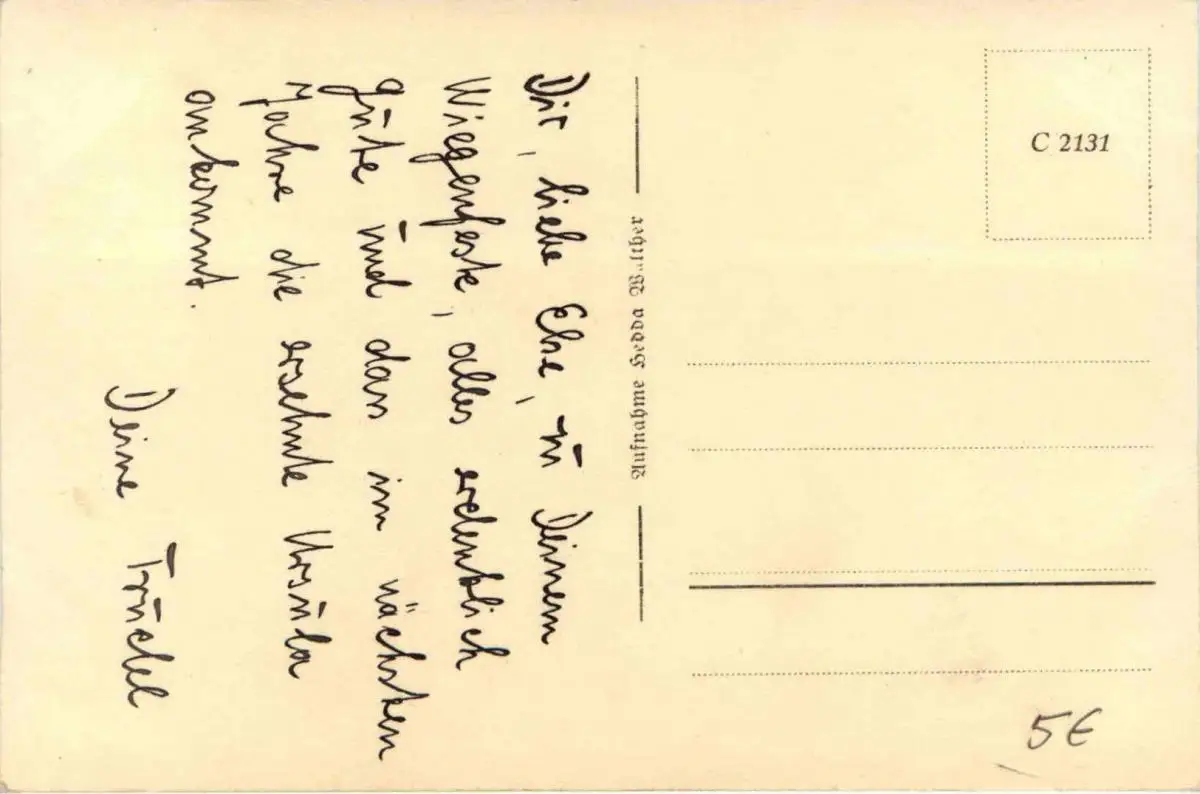 Dir, liebe Else, zu Deinem
Wiegenfeste, alles erdenklich
gute und dass im nächsten
Jahre die ersehnte Ursula
ankommt.
Deine Trudel
Aufnahme Hedda Walther
C 2131
5€